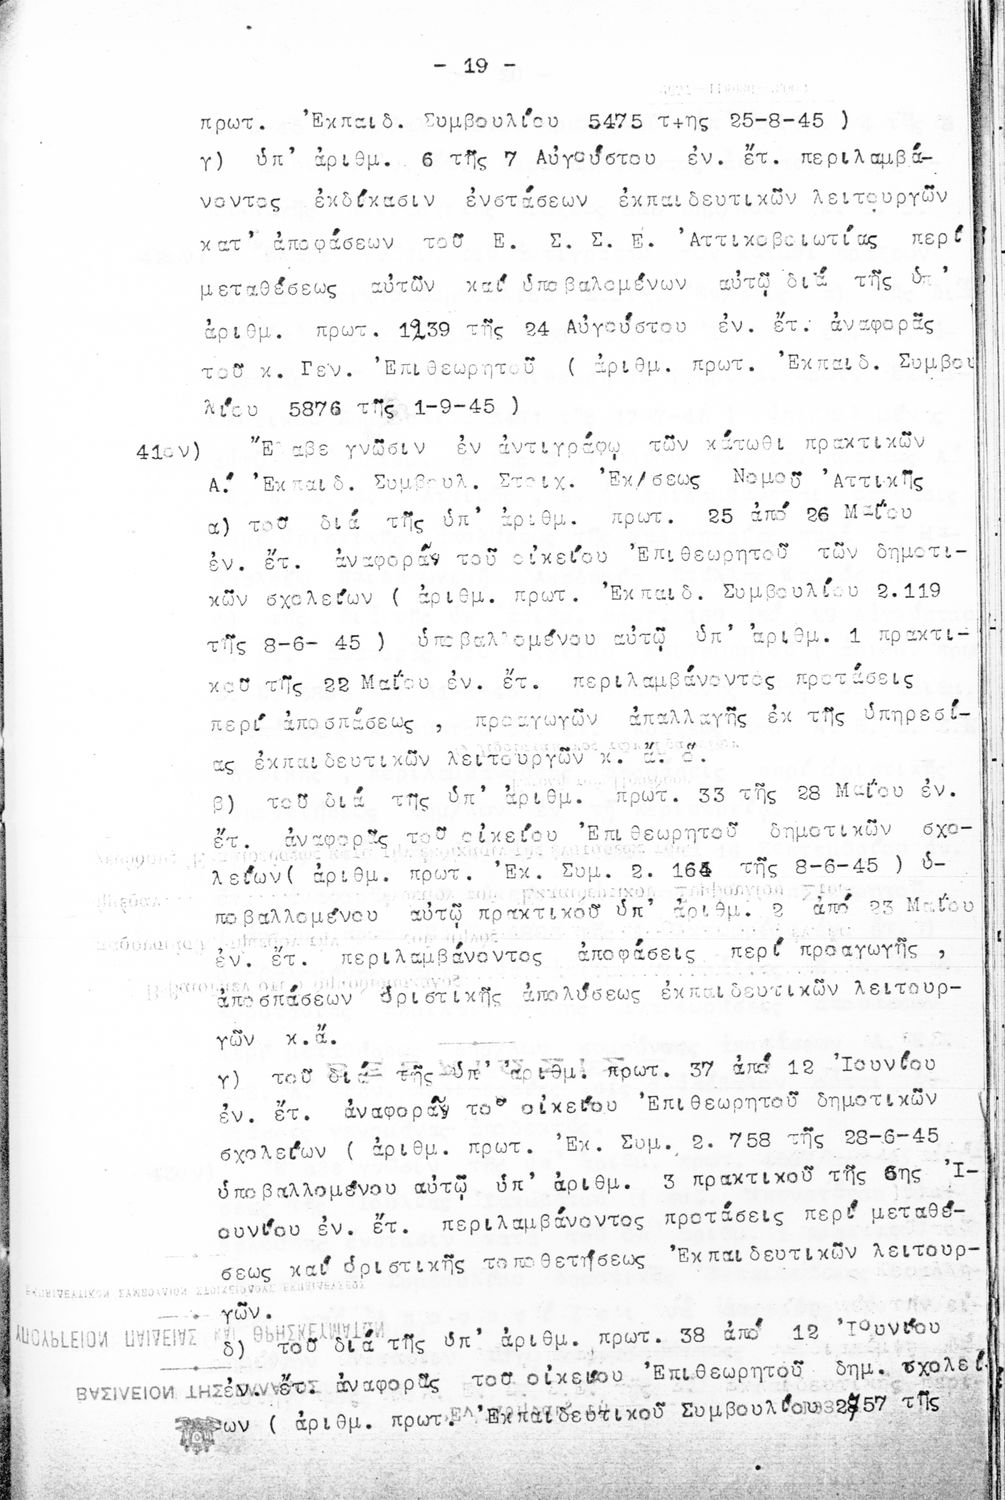 - 19 -
πρωτ. Ἐκπαιδ. Συμβουλίου 5475 τ+ης 25-8-45 )
γ) ὑπ' ἀριθμ. 6 τῆς 7 Αὐγούστου ἐν. ἔτ. περιλαμβά-
νοντος ἐκδίκασιν ἐνστάσεων ἐκπαιδευτικῶν λειτουργῶν
κατ' ἀποφάσεων τοῦ Ε. Σ. Σ. Ε. Ἀττικοβοιωτίας περί
μεταθέσεως αὐτῶν καί ὑποβαλομένων αὐτῷ διά τῆς ὑπ'
ἀριθμ. πρωτ. 1239 τῆς 24 Αὐγούστου ἐν. ἔτ. ἀναφορᾶς
τοῦ κ. Γεν. Ἐπιθεωρητοῦ ( ἀριθμ. πρωτ. Ἐκπαιδ. Συμβου
λίου 5876 τῆς 1-9-45 )
41ον) Ἔλαβε γνῶσιν ἐν ἀντιγράφῳ τῶν κάτωθι πρακτικῶν
Α.' Ἐκπαιδ. Συμβουλ. Στοιχ. Ἐκ/σεως Νομοῦ Ἀττικῆς
α) τοῦ διά τῆς ὑπ' ἀριθμ. πρωτ. 25 ἀπό 26 Μαΐου
ἐν. ἔτ. ἀναφορᾶς τοῦ οἰκείου Ἐπιθεωρητοῦ τῶν δημοτι-
κῶν σχολείων ( ἀριθμ. πρωτ. Ἐκπαιδ. Συμβουλίου 2.119
τῆς 8-6- 45 ) ὑποβαλλομένου αὐτῷ ὑπ' ἀριθμ. 1 πρακτι-
κοῦ τῆς 22 Μαΐου ἐν. ἔτ. περιλαμβάνοντος προτάσεις
περί ἀποσπάσεως , προαγωγῶν ἀπαλλαγῆς ἐκ τῆς ὑπηρεσί-
ας ἐκπαιδευτικῶν λειτουργῶν κ. ἄ. ὅ.
β) τοῦ διά της ὑπ' ἀριθμ. πρωτ. 33 τῆς 28 Μαΐου ἐν.
ἔτ. ἀναφορᾶς τοῦ οἰκείου Ἐπιθεωρητοῦ δημοτικῶν σχο-
λείων( ἀριθμ. πρωτ. Ἐκ. Συμ. 2. 164 τῆς 8-6-45 ) ὑ-
ποβαλλομένου αὐτῷ πρακτικοῦ ὑπ' ἀριθμ. 2 ἀπό 23 Μαΐου
ἐν. ἔτ. περιλαμβάνοντος ἀποφάσεις περί προαγωγῆς ,
ἀποσπάσεων ὁριστικῆς ἀπολύσεως ἐκπαιδευτικῶν λειτουρ-
γῶν κ.ἄ.
γ) τοῦ διά τῆς ὑπ' ἀριθμ. πρωτ. 37 ἀπό 12 Ἰουνίου
ἐν. ἔτ. ἀναφορᾶς τοῦ οἰκείου Ἐπιθεωρητοῦ δημοτικῶν
σχολείων ( ἀριθμ. πρωτ. Ἐκ. Συμ. 2. 758 τῆς 28-6-45
ὑποβαλλομένου αὐτῷ ὑπ' ἀριθμ. 3 πρακτικοῦ τῆς 6ης Ἰ-
ουνίου ἐν. ἔτ. περιλαμβάνοντος προτάσεις περί μεταθέ-
σεως καί ὁριστικῆς τοποθετήσεως Ἐκπαιδευτικῶν λειτουρ-
γῶν.
δ) τοῦ διά τῆς ὑπ' ἀριθμ. πρωτ. 38 ἀπό 12 Ἰουνίου
ἐν. ἔτ. ἀναφορᾶς τοῦ οἰκείου Ἐπιθεωρητοῦ δημ. σχολεί
ων ( ἀριθμ. πρωτ. Ἐκπαιδευτικοῦ Συμβουλίου 2757 τῆς